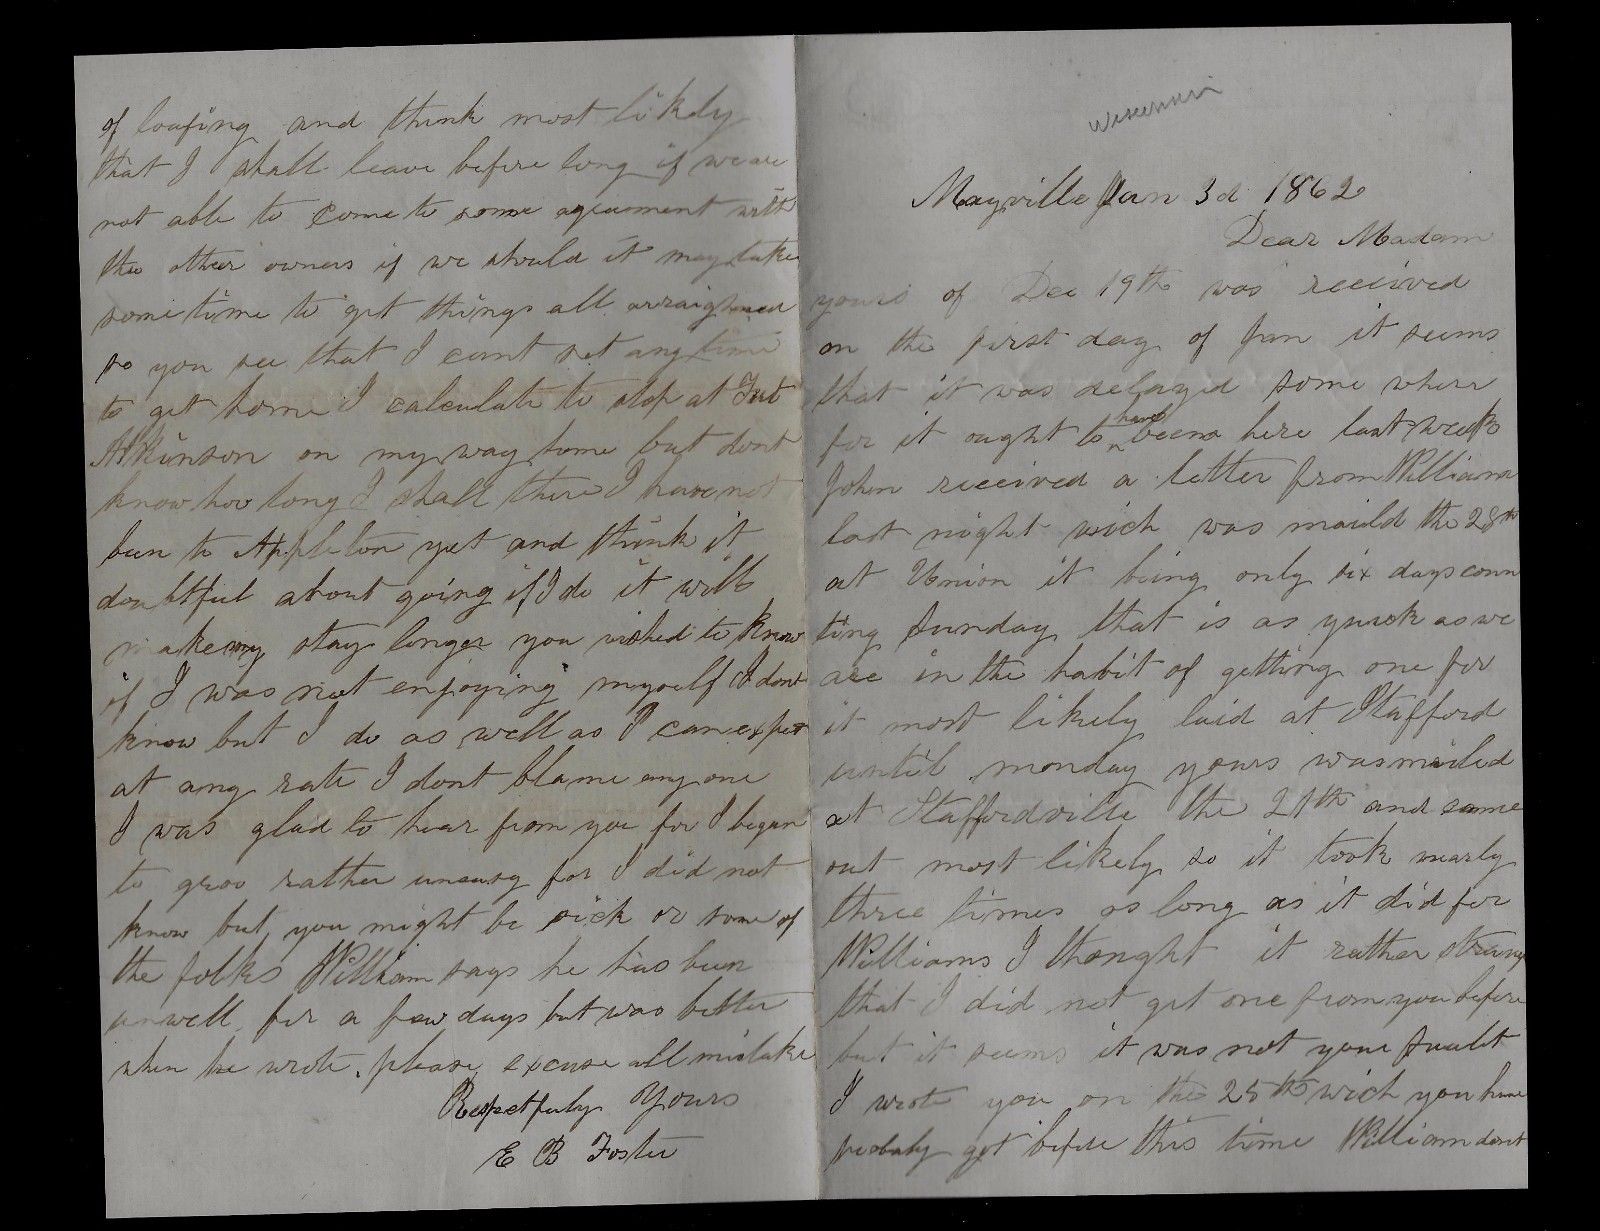 Wisconsin
Mayville Jan 3d 1862
Dear Madam
yours of Dec 19th was received
on the first day of Jan it seems
that it was delayed some where
for it ought to have beena here last week
John received a letter from William
last night wich was maild the 28th
at Union it being only six days coun
ting Sunday that is as quick as we
are in the habit of getting one for
it most likely laid at Stafford
until monday yours was mailed
at Staffordville the 21th and came
out most likely so it took nearly
three times as long as it did for
Williams I thought it rather strang
that I did not get one from you before
but it seems it was not your fault
I wrote you on the 25th wich you have
probaly got before this time William dont
of loafing and think most likely
that I shall leave before long if we are
not able to come to some agreement with
the other owners if we should it may take
some time to get things all
so you see that I cant set any time
to get home I calculate to stop at Fort
Atkinson on my way home but dont
know how long I shall there I have not
been to Appleton yet and think it
doubtful about going if I do it will
make my stay longer you wished to know
if I was not enjoying myself I dont
know but I do as well as I can expect
at any rate I dont blame any one
I was glad to hear from you for I began
to grow rather uneasy for I did not
know but you might be sick or some of
the folks William says he has been
unwell for a few days but was better
when he wrote. please excuse all mistake
Respectfuly Yours
E B Foster